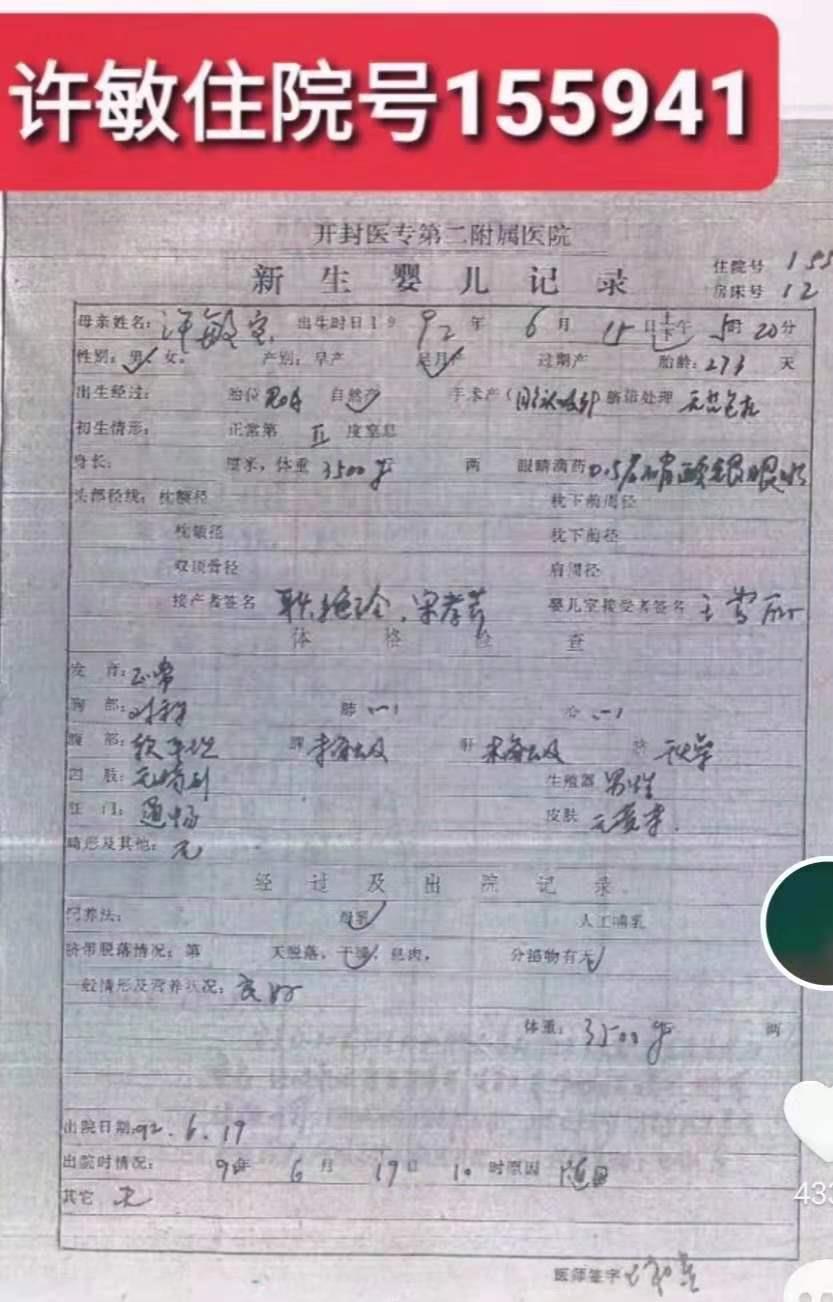 许敏住院号155941
开封医专第二附属医院
新生婴儿记录
住院号 155
房床号 12
母亲姓名: 许敏 出生时日19 92 年 6 月 15 日 上 下 午 5时20分
性别:男 女 产别:早产 足月产 过期产 胎龄:273 天
出生经过: 胎位 自然产 手术产( 脐带处理
初生情形: 正常第 II 度窒息
身长: 厘米,体重 3500 两 眼睛滴药 0.5%硝酸银眼水
头部径线:枕额径 枕下前周径
枕下前径
双顶骨径 肩周径
接产者签名 婴儿室接受者签名
体格检查
发育:正常
胸部:对称 肺 (-) 心 (-)
腹部:软平坦 脾 未触及 肝 未触及 脐
四肢:无畸形 生殖器 男性
肛门:通畅 皮肤
畸形及其他:无
经过及出院记录
母乳 人工哺乳
脐带脱落情况:第 天脱落,干燥,息肉, 分泌物有无
一般情形及营养状况:良好
体重: 3500 两
出院日期:92.6.19
出院时情况: 92年 6 月 19日 10 时原因
其它 无
医师签字
433